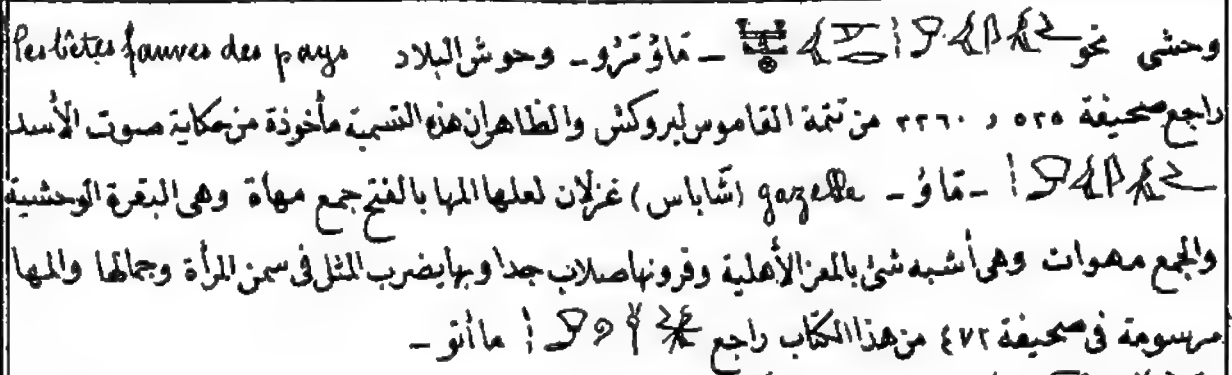 وحشى نحو ـ مَاؤُ مَرُو ـ وحوش البلاد les bêtes fauves des pays
راجع صحيفة ٥٢٥ و ٢٢٦٠ من تتمة القاموس لبروكش والظاهر ان هذه التسمية مأخوذة من حكاية صوت الأسد
ـ مَاؤُ ـ gazelle (شاباس) غزلان لعلها المها بالفتح جمع مهاة وهى البقرة الوحشية
والجمع مهوات وهى أشبه شئ بالمعز الأهلية وقرونها صلاب جدا وبها يضرب المثل فى سمن المرأة وجمالها والمها
مرسومة فى صحيفة ٤٧٢ من هذا الكتاب راجع ماأتو ـ